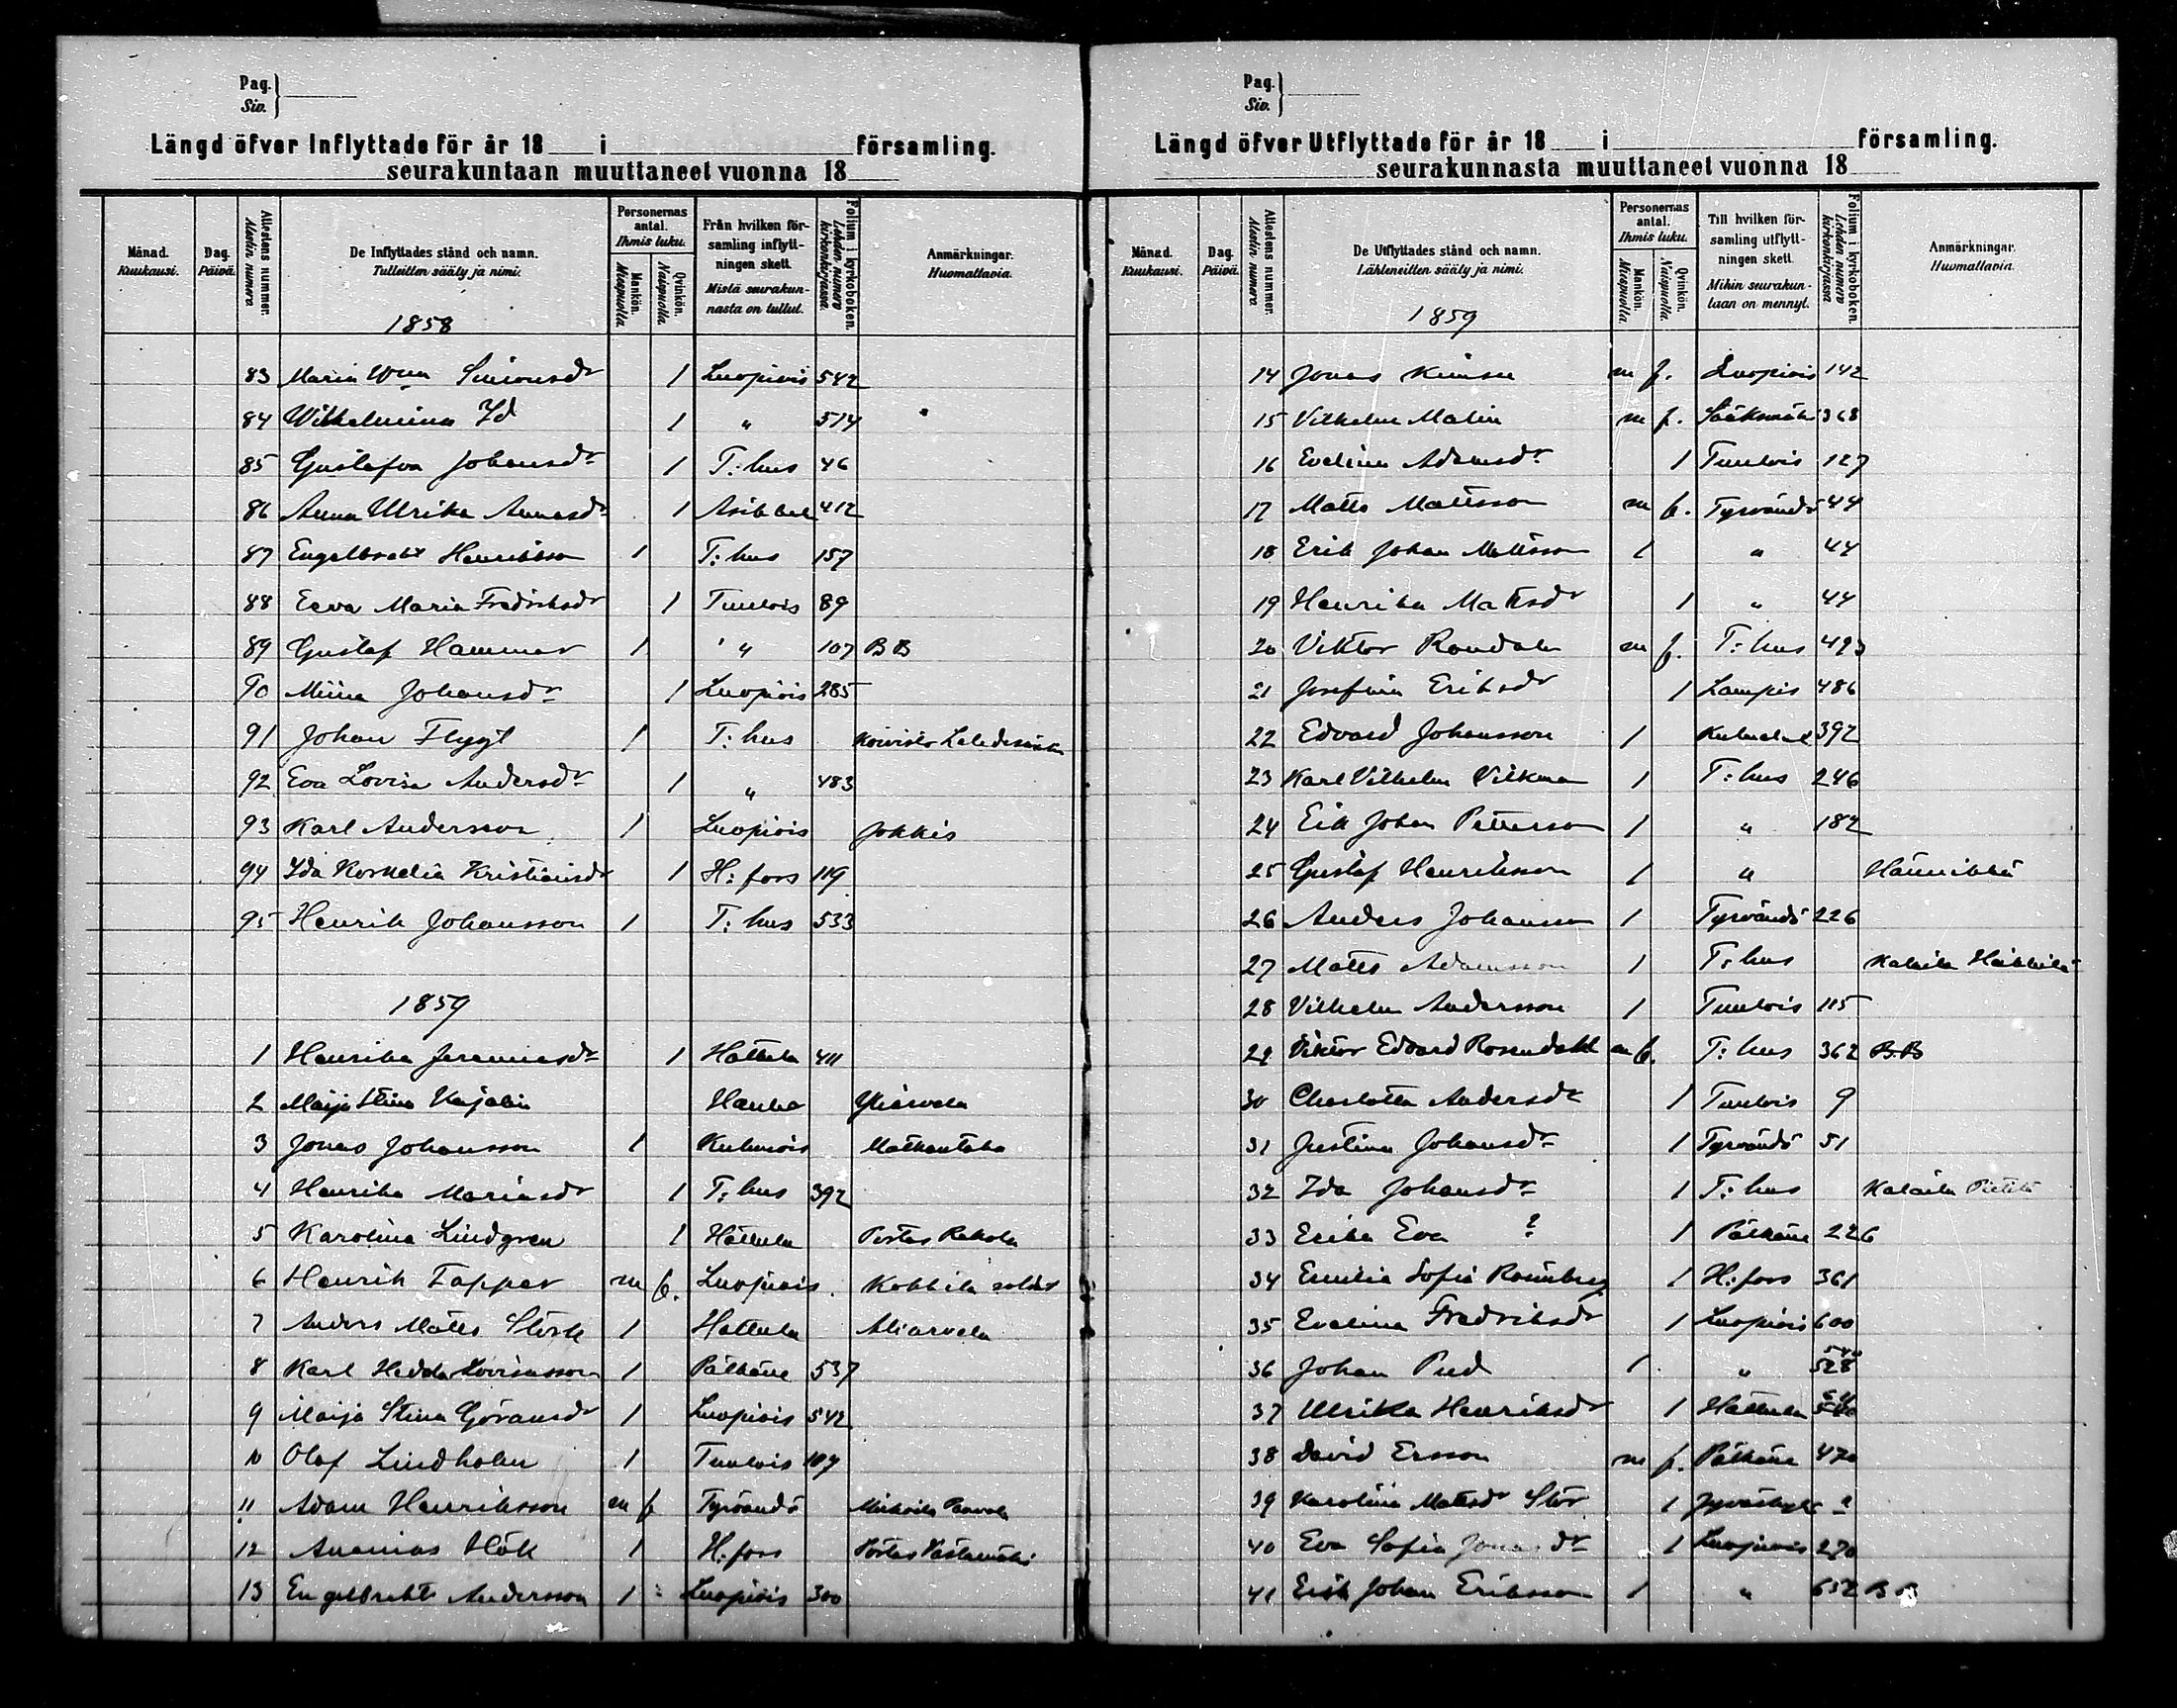 Pag.
Siv.
Längd öfver Inflyttade för år 18 i församling.
seurakuntaan muuttaneet vuonna 18
Månad. Kuukausi.
Dag. Päivä.
Attestens nummer. Alestin numera
De Inflyttades stånd och namn.
Tulleitten sääty ja nimi.
Personernas antal. Ihmis luku.
Mankön. Miespuolia
Qvinkön. Naispuolia
Från hvilken församling inflyttningen skett.
Mistä seurakunnasta on tullut.
Folium i kyrkoboken. Lehden numero kirkonkirjassa.
Anmärkningar.
Huomattavia.
1858
83 Maria Wma Simonsdr 1 Luopiois 542
84 Wilhelmina Id 1 " 514
85 Gustafva Johansdr 1 T:hus 46
86 Anna Ulrika Annasdr 1 Asikkal 412
87 Engelbrekt Henriksson 1 T:hus 157
88 Eeva Maria Fredriksdr 1 Tuulois 89
89 Gustaf Hammar 1 " 107 BB
90 Miina Johansdr 1 Luopiois 285
91 Johan Flygt 1 T:hus Koivisto
92 Eva Lovisa Andersdr 1 " 483
93 Karl Andersson 1 Luopiois Jokkis
94 Ida Kornelia Kristiansdr 1 H:fors 119
95 Henrik Johansson 1 T:hus 533
1859
1 Henrika Jeremiasdr 1 Hattula 411
2 Maija Stina Kajalin Hauho Yliarvela
3 Jonas Johansson 1 Kuhmois Matkantaka
4 Henrika Mariasdr 1 T:hus 392
5 Karolina Lindgren 1 Hattula Portas Rekola
6 Henrik Tapper m f. Luopiois. Kokkila soldat
7 Anders Matts Störk 1 Hattula Aliarvela
8 Karl Hedda Lovisasson 1 Pälkäne 537
9 Maija Stina Göransdr 1 Luopiois 542
10 Olof Lindholm 1 Tuulois 109
11 Adam Henriksson m f Tyrväntö Paavola
12 Ananias Hök 1 H:fors Portas
13 Engelbrekt Andersson 1 Luopiois 300
Pag.
Siv.
Längd öfver Utflyttade för år 18 i församling.
seurakunnasta muuttaneet vuonna 18
Månad. Kuukausi.
Dag. Päivä.
Attestens nummer. Alestin numera
De Utflyttades stånd och namn.
Lähteneitten sääty ja nimi.
Personernas antal. Ihmis luku.
Mankön. Miespuolia
Qvinkön. Naispuolia.
Till hvilken församling utflyttningen skett.
Mihin seurakuntaan on mennyt.
Folium i kyrkoboken. Lehden numero kirkonkirjassa
Anmärkningar.
Huomattavia.
1859
14 Jonas m f. Luopiois 142
15 Vilhelm Malin m f. Sääksmäki 368
16 Evelina Adamsdr 1 Tuulois 127
17 Matts Mattsson m f. Tyrväntö 44
18 Erik Johan Mattsson 1 " 44
19 Henrika Mattsdr 1 " 44
20 Viktor Rondahl m f. T:hus 493
21 Josefina Eriksdr 1 Lampis 486
22 Edvard Johansson 1 392
23 Karl Vilhelm Vikman 1 T:hus 246
24 Erik Johan Petterson 1 " 182
25 Gustaf Henriksson 1 " Hännikkä
26 Anders Johansson 1 Tyrväntö 226
27 Matts Adamsson 1 T:hus Kalaila
28 Vilhelm Andersson 1 Tuulois 115
29 Viktor Edvard Rosendahl m f. T:hus 362 B.B
30 Charlotta Andersdr 1 Tuulois 9
31 Justina Johansdr 1 Tyrväntö 51
32 Ida Johansdr 1 T:hus Kalaila
33 Erika Eva ? 1 Pälkäne 226
34 Emilia Sofia 1 H:fors 361
35 Evelina Fredriksdr 1 Luopiois 600
36 Johan 1 " 528
37 Ulrika Henriksdr 1 Hattula
38 David Ersson m f. Pälkäne 470
39 Karolina Mattsdr Stör 1 Jyväskylä ?
40 Eva Sofia Jonasdr 1 Luopiois 270
41 Erik Johan Eriksson 1 " 652 BB